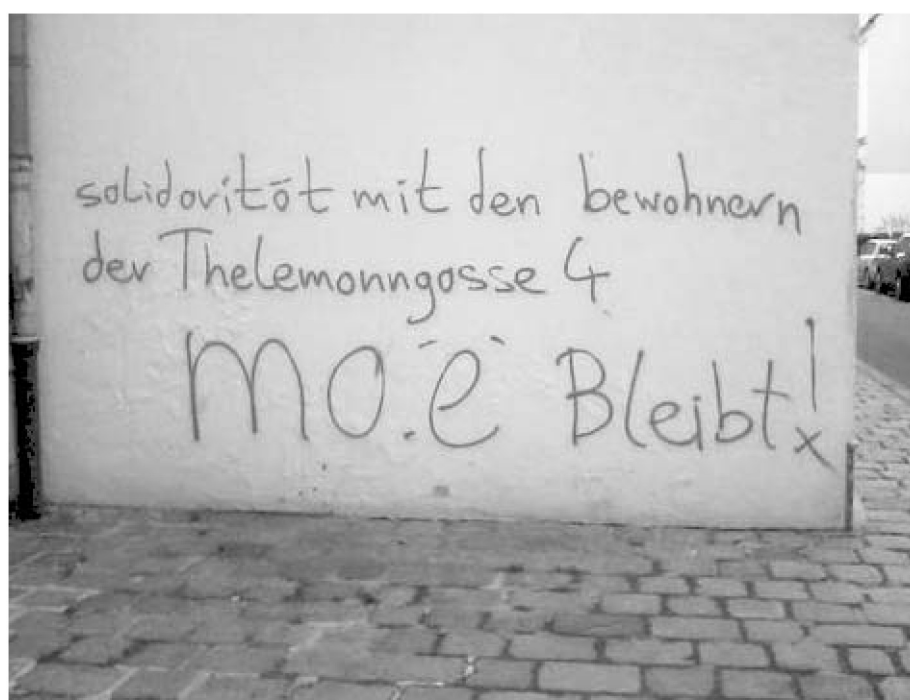 solidarität mit den bewohnern
der Thelemanngasse 4
mo.ë Bleibt!